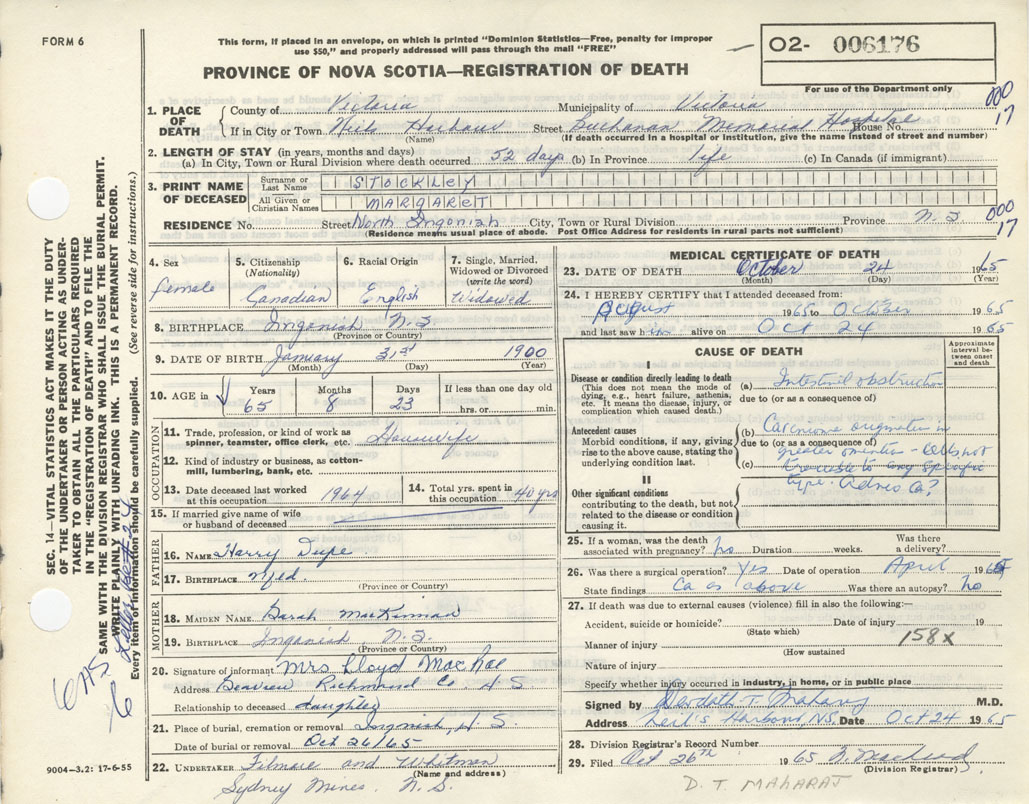 FORM 6
This form, if placed in an envelope, on which is printed "Dominion Statistics—Free, penalty for improper
use $50," and properly addressed will pass through the mail "FREE"
O2- 006176
For use of the Department only
PROVINCE OF NOVA SCOTIA—REGISTRATION OF DEATH
1. PLACE OF DEATH County of Victoria Municipality of Victoria 000
17
If in City or Town Neils Harbour Street Buchanan Memorial Hospital House No.
(Name) (If death occurred in a hospital or institution, give the name instead of street and number)
2. LENGTH OF STAY (in years, months and days)
(a) In City, Town or Rural Division where death occurred 52 days (b) In Province life (c) In Canada (if immigrant)
3. PRINT NAME OF DECEASED Surname or Last Name STOCKLEY
All Given or Christian Names MARGARET
RESIDENCE No. Street North Ingonish City, Town or Rural Division Province N.S 000
17
(Residence means usual place of abode. Post Office Address for residents in rural parts not sufficient)
4. Sex female
5. Citizenship (Nationality) Canadian
6. Racial Origin English
7. Single, Married, Widowed or Divorced (write the word) Widowed
8. BIRTHPLACE Ingonish N.S
(Province or Country)
9. DATE OF BIRTH January 31st 1900
(Month) (Day) (Year)
10. AGE in Years 65 Months 8 Days 23 If less than one day old hrs. or min.
OCCUPATION
11. Trade, profession, or kind of work as spinner, teamster, office clerk, etc. Housewife
12. Kind of industry or business, as cotton-mill, lumbering, bank, etc.
13. Date deceased last worked at this occupation 1964
14. Total yrs. spent in this occupation 40 yrs
15. If married give name of wife or husband of deceased
FATHER
16. NAME Harry
17. BIRTHPLACE Nfld.
(Province or Country)
MOTHER
18. MAIDEN NAME Sarah MacKinnon
19. BIRTHPLACE Ingonish N.S
(Province or Country)
20. Signature of informant Mrs Lloyd
Address Richmond Co. N.S
Relationship to deceased daughter
21. Place of burial, cremation or removal Ingonish N.S.
Date of burial or removal Oct 26/65
22. UNDERTAKER Filmore and Whitman
(Name and address)
Sydney Mines N.S.
MEDICAL CERTIFICATE OF DEATH
23. DATE OF DEATH October 24 1965
(Month) (Day) (Year)
24. I HEREBY CERTIFY that I attended deceased from:
August 1965 to October 1965
and last saw h alive on Oct 24 1965
CAUSE OF DEATH
Approximate interval between onset and death
I
Disease or condition directly leading to death
(This does not mean the mode of dying, e.g., heart failure, asthenia, etc. It means the disease, injury, or complication which caused death.)
(a) Intestinal obstruction
due to (or as a consequence of)
Antecedent causes
Morbid conditions, if any, giving rise to the above cause, stating the underlying condition last.
(b) Carcinoma originates in
due to (or as a consequence of)
greater omentum - Cells not
(c) traceable to any specific
type.
II
Other significant conditions
contributing to the death, but not related to the disease or condition causing it.
25. If a woman, was the death associated with pregnancy? No Duration weeks. Was there a delivery?
26. Was there a surgical operation? Yes Date of operation April 1965
State findings Ca as above Was there an autopsy? No
27. If death was due to external causes (violence) fill in also the following:—
Accident, suicide or homicide? Date of injury 19
(State which)
158x
Manner of injury
(How sustained
Nature of injury
Specify whether injury occurred in industry, in home, or in public place
Signed by T. Maharaj M.D.
Address Neil's Harbour N.S. Date Oct 24 1965
28. Division Registrar's Record Number
29. Filed Oct 26th 1965
(Division Registrar)
D. T. MAHARAJ
SEC. 14—VITAL STATISTICS ACT MAKES IT THE DUTY
OF THE UNDERTAKER OR PERSON ACTING AS UNDER-
TAKER TO OBTAIN ALL THE PARTICULARS REQUIRED
IN THE "REGISTRATION OF DEATH" AND TO FILE THE
SAME WITH THE DIVISION REGISTRAR WHO SHALL ISSUE THE BURIAL PERMIT.
WRITE PLAINLY WITH UNFADING INK. THIS IS A PERMANENT RECORD.
Every item of information should be carefully supplied. (See reverse side for instructions.)
9004—3.2: 17-6-55